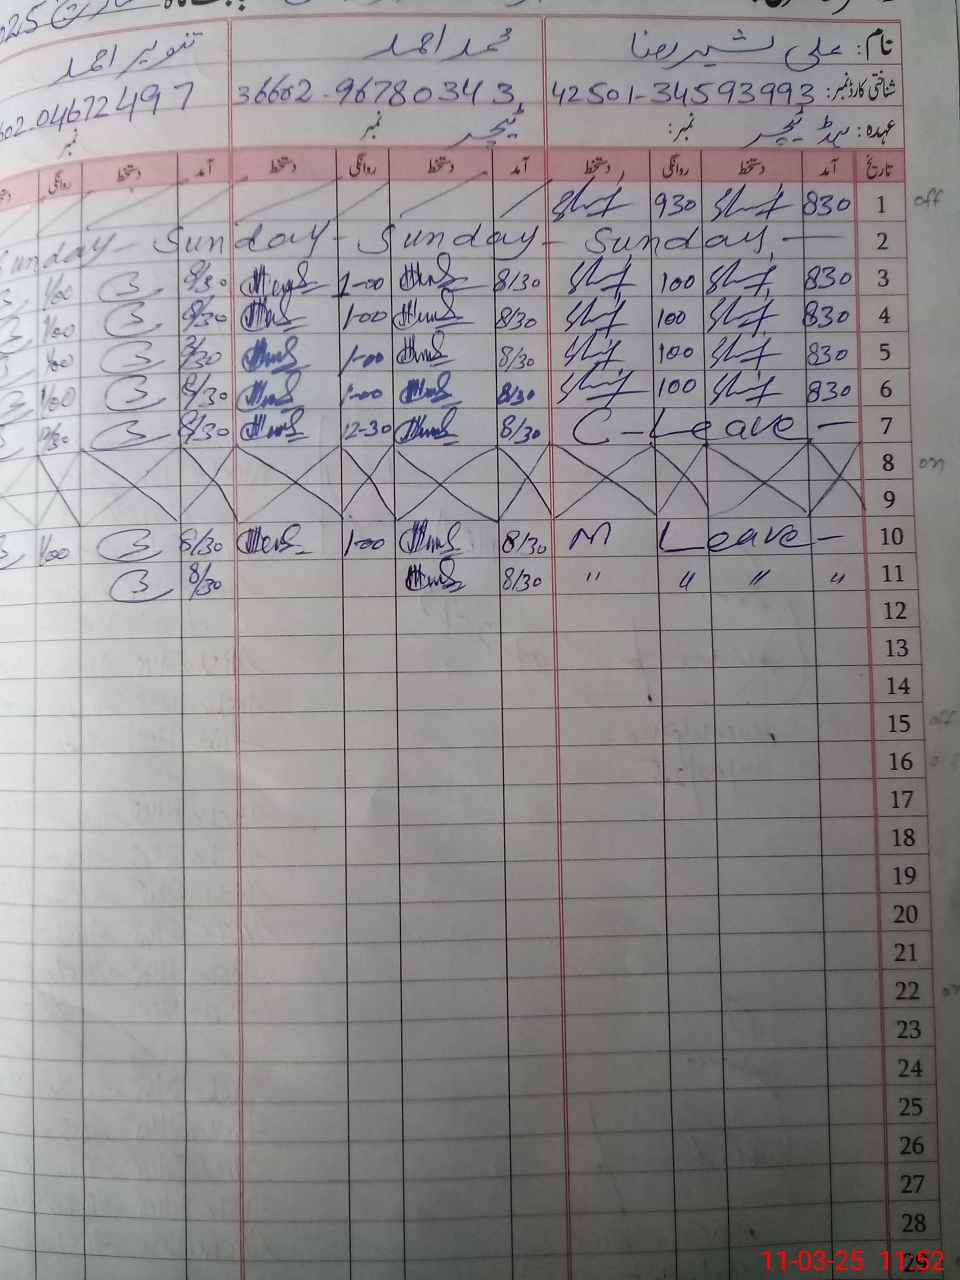 2025
نام: علی شیر رضا محمد احمد تنویر احمد
شناختی کارڈ نمبر: 42501-34593993 36602-96780343 04672497
عہدہ: ہیڈ ٹیچر نمبر: ٹیچر نمبر نمبر
تاریخ آمد دستخط روانگی دستخط آمد دستخط روانگی دستخط آمد دستخط روانگی
1 830 930 off
2 Sunday - Sunday - Sunday - Sunday
3 830 100 8/30 1-00 8/30 1/00
4 830 100 8/30 1-00 8/30 1/00
5 830 100 8/30 1-00 8/30 1/00
6 830 100 8/30 1-00 8/30 1/00
7 C-Leave - 8/30 12-30 8/30 12/30
8 on
9
10 M Leave - 8/30 1-00 8/30 1/00
11 " " " " 8/30 8/30
12
13
14
15 off
16
17
18
19
20
21
22 on
23
24
25
26
27
28
29
11-03-25 11:52